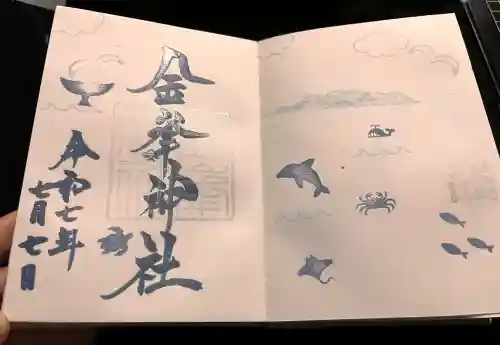 金峯神社
令和七年
七月七日